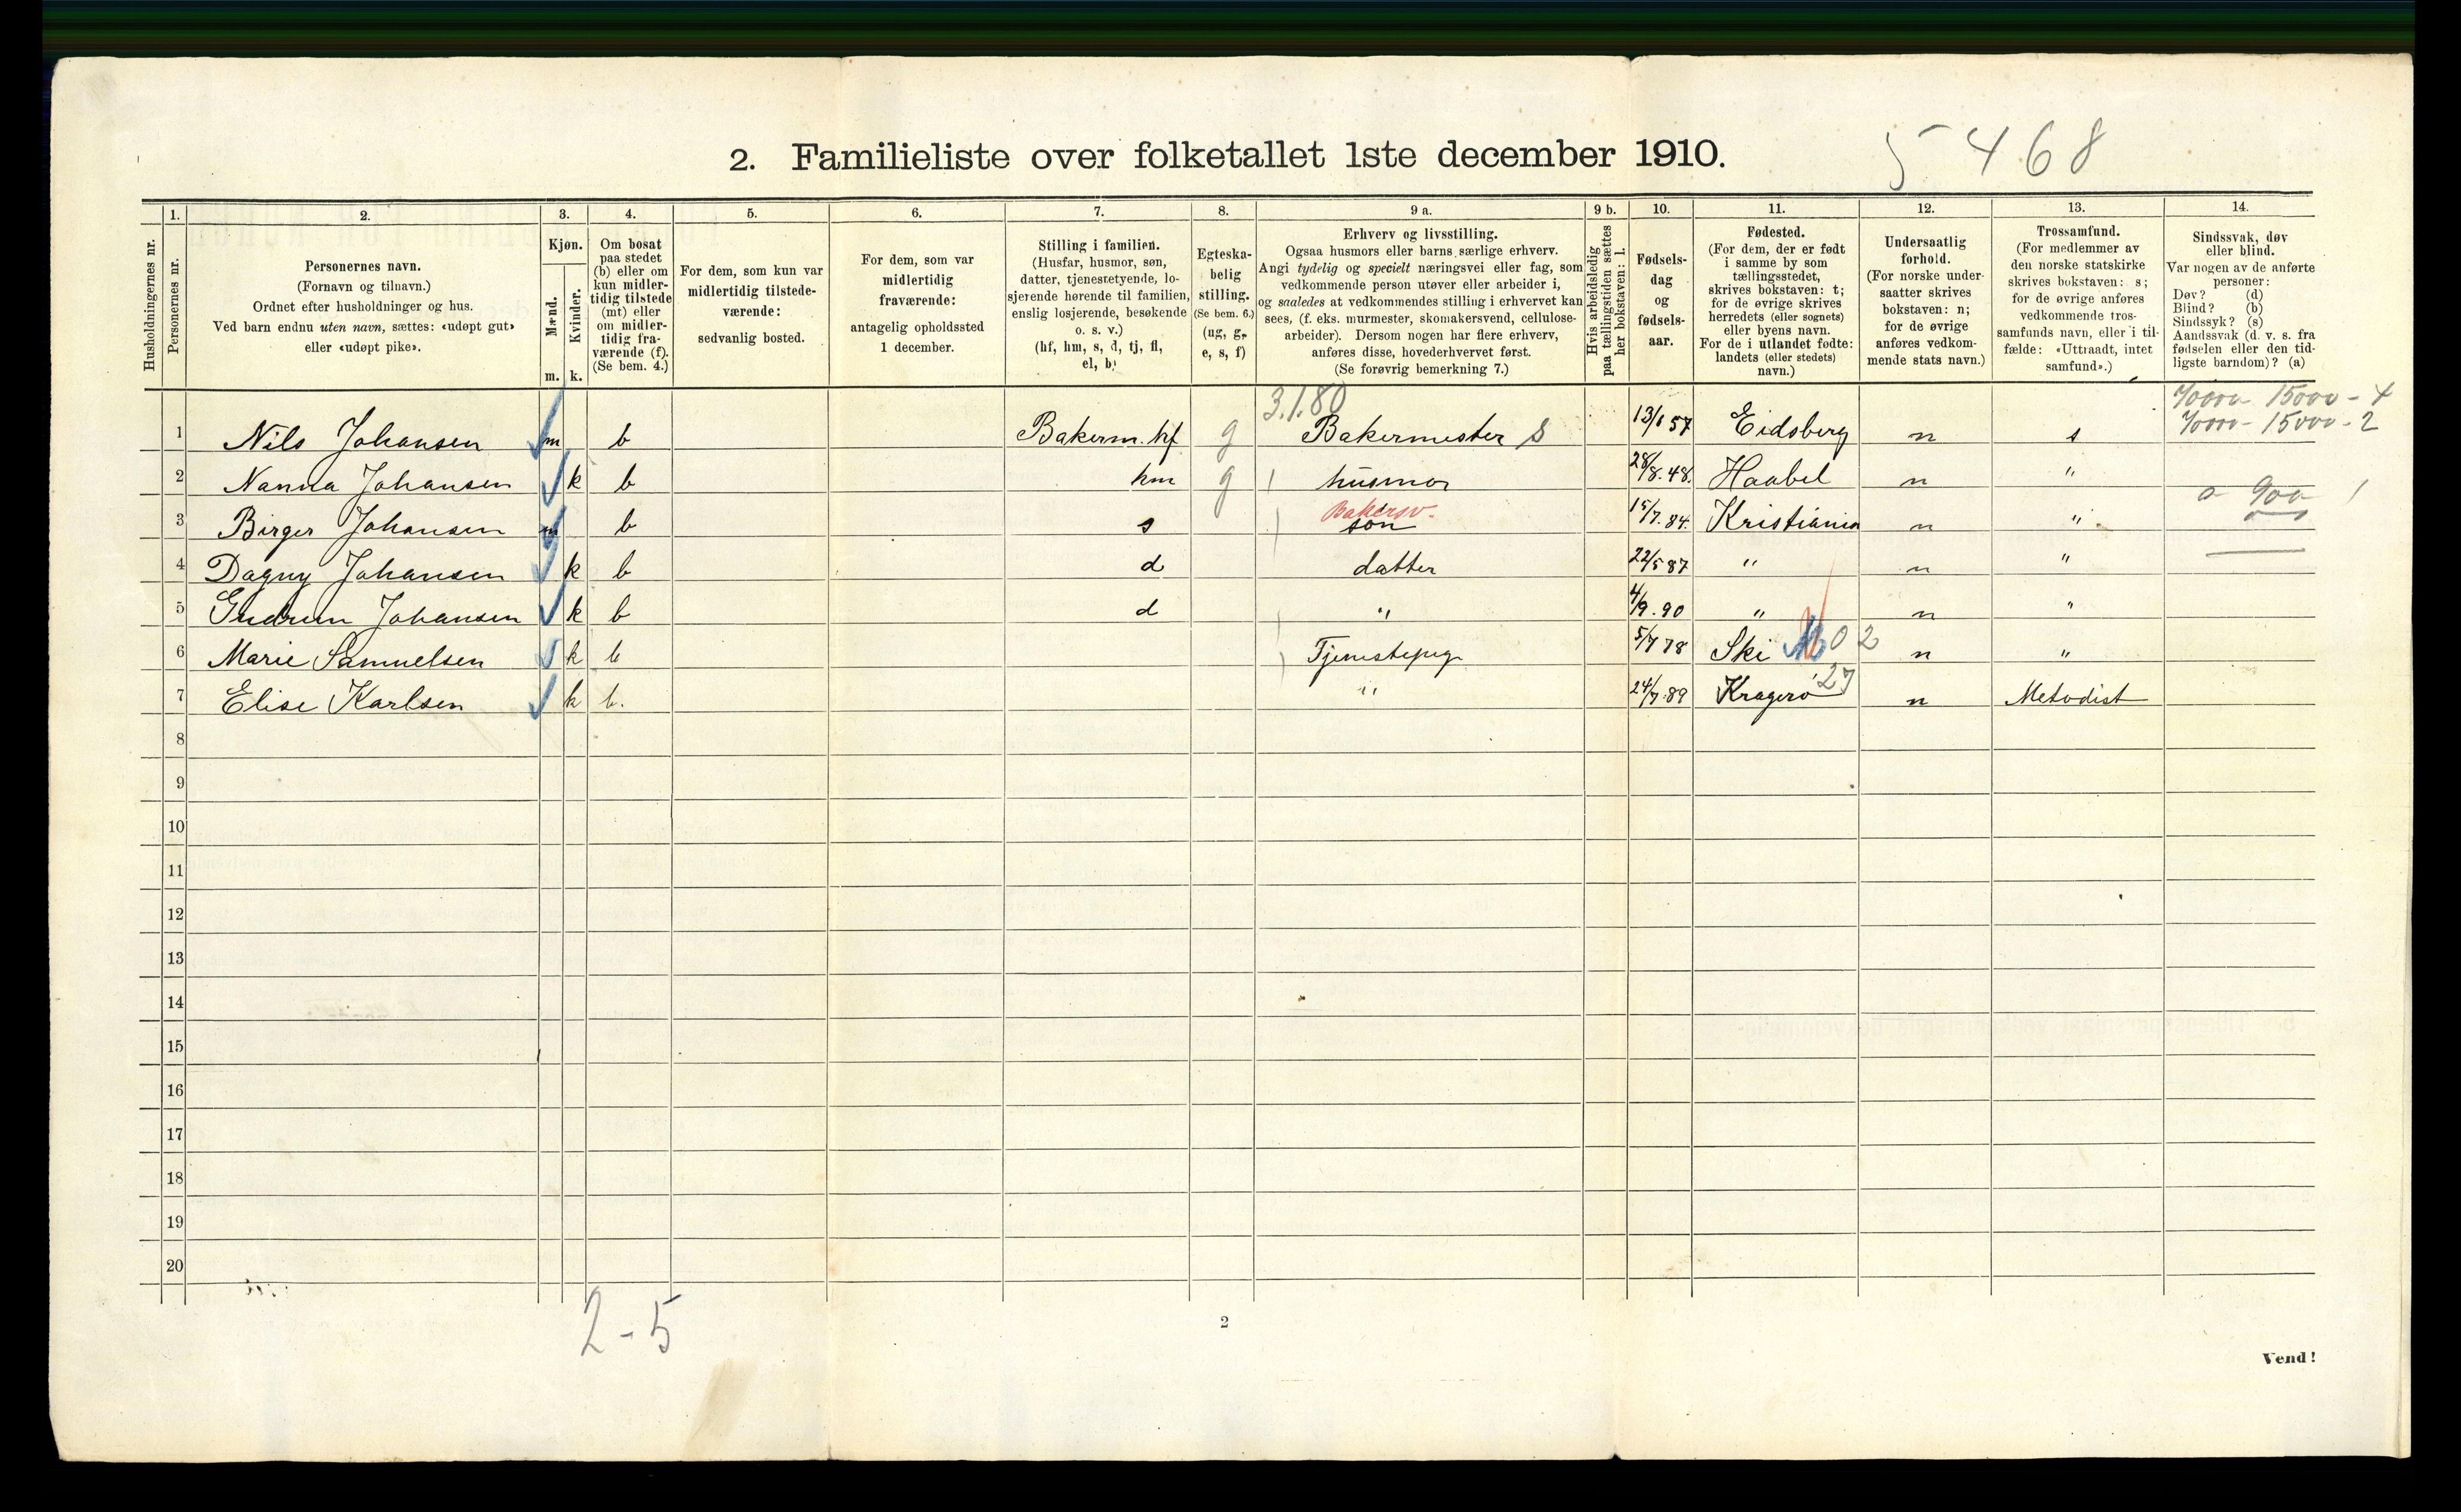 2. Familieliste over folketallet 1ste december 1910.
5468
Husholdningernes nr.
1.
Personernes nr.
2.
Personernes navn.
(Fornavn og tilnavn.)
Ordnet efter husholdninger og hus.
Ved barn endnu uten navn, sættes: «udøpt gut»
eller «udøpt pike».
3.
Kjøn.
Mænd.
Kvinder.
m. k.
4.
Om bosat
paa stedet
(b) eller om
kun midler-
tidig tilstede
(mt) eller
om midler-
tidig fra-
værende (f).
(Se bem. 4.)
5.
For dem, som kun var
midlertidig tilstede-
værende:
sedvanlig bosted.
6.
For dem, som var
midlertidig
fraværende:
antagelig opholdssted
1 december.
7.
Stilling i familien.
(Husfar, husmor, søn,
datter, tjenestetyende, lo-
sjerende hørende til familien,
enslig losjerende, besøkende
o. s. v.)
(hf, hm, s, d, tj, fl,
el, b)
8.
Egteska-
belig
stilling.
(Se bem. 6.)
(ug, g,
e, s, f)
9 a.
Erhverv og livsstilling.
Ogsaa husmors eller barns særlige erhverv.
Angi tydelig og specielt næringsvei eller fag, som
vedkommende person utøver eller arbeider i,
og saaledes at vedkommendes stilling i erhvervet kan
sees, (f. eks. murmester, skomakersvend, cellulose-
arbeider). Dersom nogen har flere erhverv,
anføres disse, hovederhvervet først.
(Se forøvrig bemerkning 7.)
9 b.
Hvis arbeidsledig
paa tællingstiden sættes
her bokstaven: l.
10.
Fødsels-
dag
og
fødsels-
aar.
11.
Fødested.
(For dem, der er født
i samme by som
tællingsstedet,
skrives bokstaven: t;
for de øvrige skrives
herredets (eller sognets)
eller byens navn.
For de i utlandet fødte:
landets (eller stedets)
navn.)
12.
Undersaatlig
forhold.
(For norske under-
saatter skrives
bokstaven: n;
for de øvrige
anføres vedkom-
mende stats navn.)
13.
Trossamfund.
(For medlemmer av
den norske statskirke
skrives bokstaven: s;
for de øvrige anføres
vedkommende tros-
samfunds navn, eller i til-
fælde: «Uttraadt, intet
samfund».)
14.
Sindssvak, døv
eller blind.
Var nogen av de anførte
personer:
Døv? (d)
Blind? (b)
Sindssyk? (s)
Aandssvak (d. v. s. fra
fødselen eller den tid-
ligste barndom)? (a)
3.1.80
1 Nils Johansen m b Bakerm. hf g Bakermester s 13/1 57 Eidsberg n s 15000 - 4
15000 - 2
2 Nanna Johansen k b hm g husmor 28/8. 48. Haabel n "
3 Birger Johansen m b s Bakersv. søn 15/7. 84. Kristiania n " 900 1
4 Dagny Johansen k b d datter 22/5 87 " n "
5 Gudrun Johansen k b d " 4/9. 90 " n "
6 Marie Samuelsen k b Tjenestepig 5/7 78 Ski 02 n "
7 Elise Karlsen k b. " 24/7 89 Kragerö 27 n Metodist
8
9
10
11
12
13
14
15
16
17
18
19
20
2-5
2
Vend!